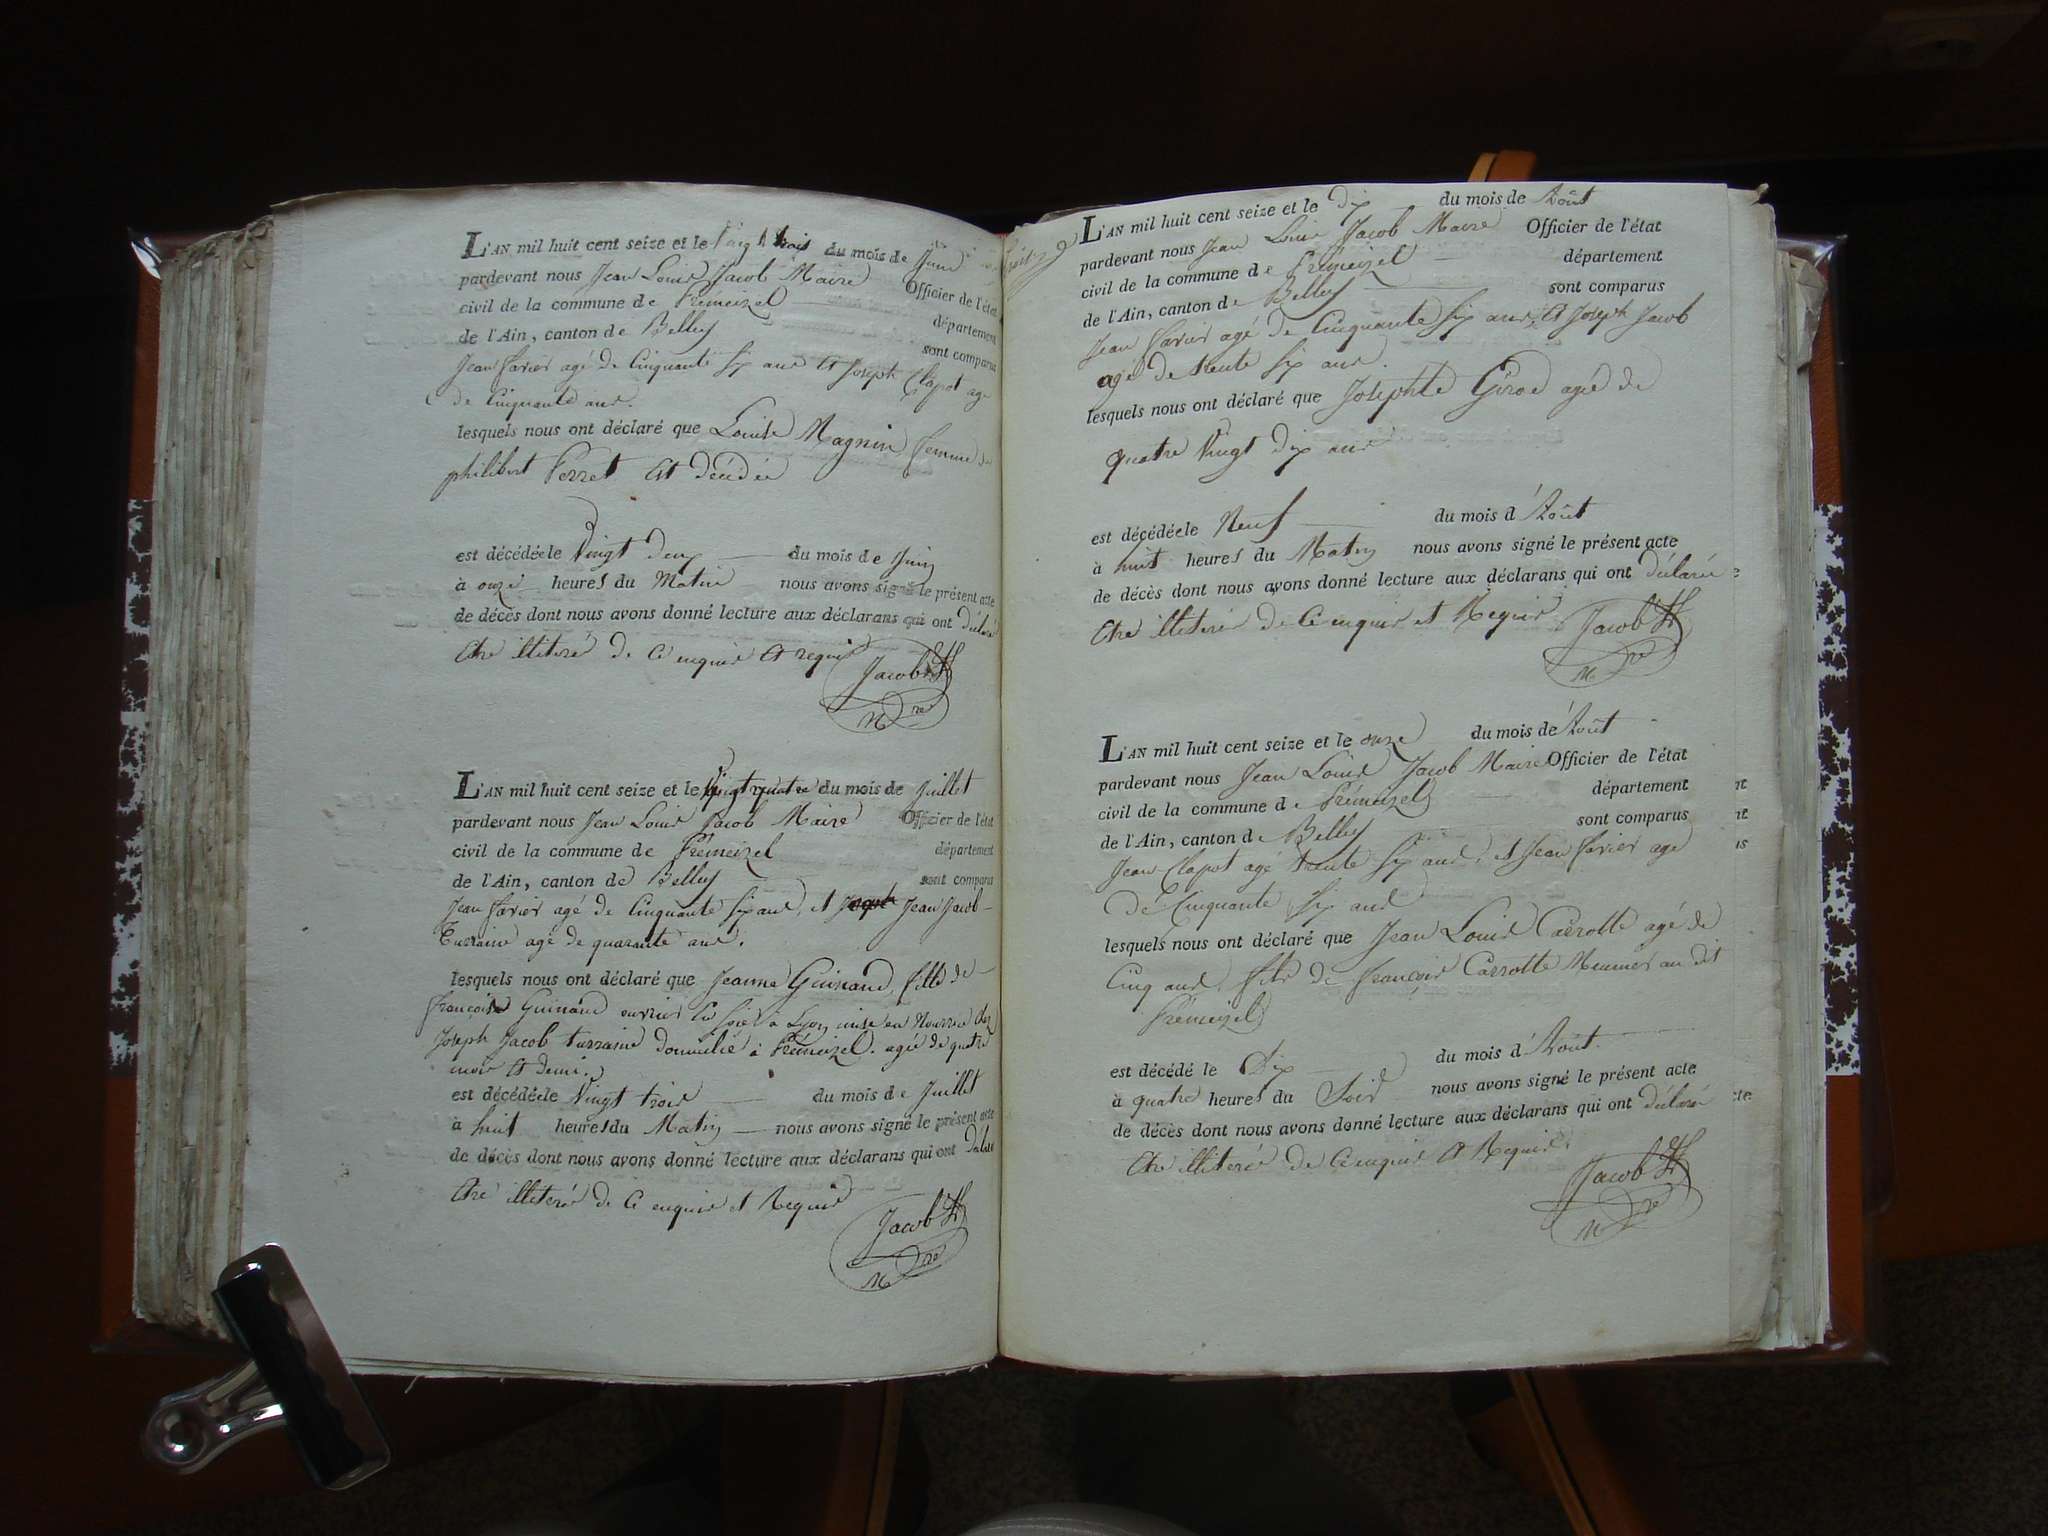 L'AN mil huit cent seize et le Vingt trois du mois de Juin
pardevant nous Jean Louis Jacob Maire Officier de l'état
civil de la commune de Prémeizel département
de l'Ain, canton de Belley sont comparus
Jean Favier agé de Cinquante six ans et Joseph Clapot agé
de Cinquante ans.
lesquels nous ont déclaré que Louise Magnin femme de
philibert Perret est décédée
est décédée le Vingt deux du mois de Juin
à onze heures du Matin nous avons signé le présent acte
de décès dont nous avons donné lecture aux déclarans qui ont déclaré
Etre illiteré de ce enquis et requis
Jacob
L'AN mil huit cent seize et le Vingt quatre du mois de Juillet
pardevant nous Jean Louis Jacob Maire Officier de l'état
civil de la commune de Prémeizel département
de l'Ain, canton de Belley sont comparus
Jean Favier agé de Cinquante six ans, et Joseph Jean Jacob
Turraine agé de quarante ans.
lesquels nous ont déclaré que Jeanne Guinand, fille de
françois Guinand ouvrier en soie à Lyon mise en Nourrice chez
Joseph Jacob turraine domicilié à Prémeizel. agée de quatre
mois et demi.
est décédée le Vingt trois du mois de Juillet
à huit heures du Matin nous avons signé le présent acte
de décès dont nous avons donné lecture aux déclarans qui ont déclaré
Etre illiteré de ce enquis et Requis
Jacob
L'AN mil huit cent seize et le dix du mois de Août
pardevant nous Jean Louis Jacob Maire Officier de l'état
civil de la commune de Prémeizel département
de l'Ain, canton de Belley sont comparus
Jean Favier agé de Cinquante six ans, et Joseph Jacob
agé de trente six ans.
lesquels nous ont déclaré que Josephte Girod agée de
quatre Vingt dix ans
est décédée le Neuf du mois d'Août
à huit heures du Matin nous avons signé le présent acte
de décès dont nous avons donné lecture aux déclarans qui ont déclaré
Etre illiteré de ce enquis et Requis
Jacob
L'AN mil huit cent seize et le onze du mois de Août
pardevant nous Jean Louis Jacob Maire Officier de l'état
civil de la commune de Prémeizel département
de l'Ain, canton de Belley sont comparus
Jean Clapot agé trente six ans, et Jean Favier agé
de Cinquante six ans
lesquels nous ont déclaré que Jean Louis Carrotte agé de
Cinq ans, fils de François Carrotte Meunier au dit
Prémeizel
est décédé le Dix du mois d'Août
à quatre heures du Soir nous avons signé le présent acte
de décès dont nous avons donné lecture aux déclarans qui ont déclaré
Etre illiteré de ce enquis et Requis
Jacob